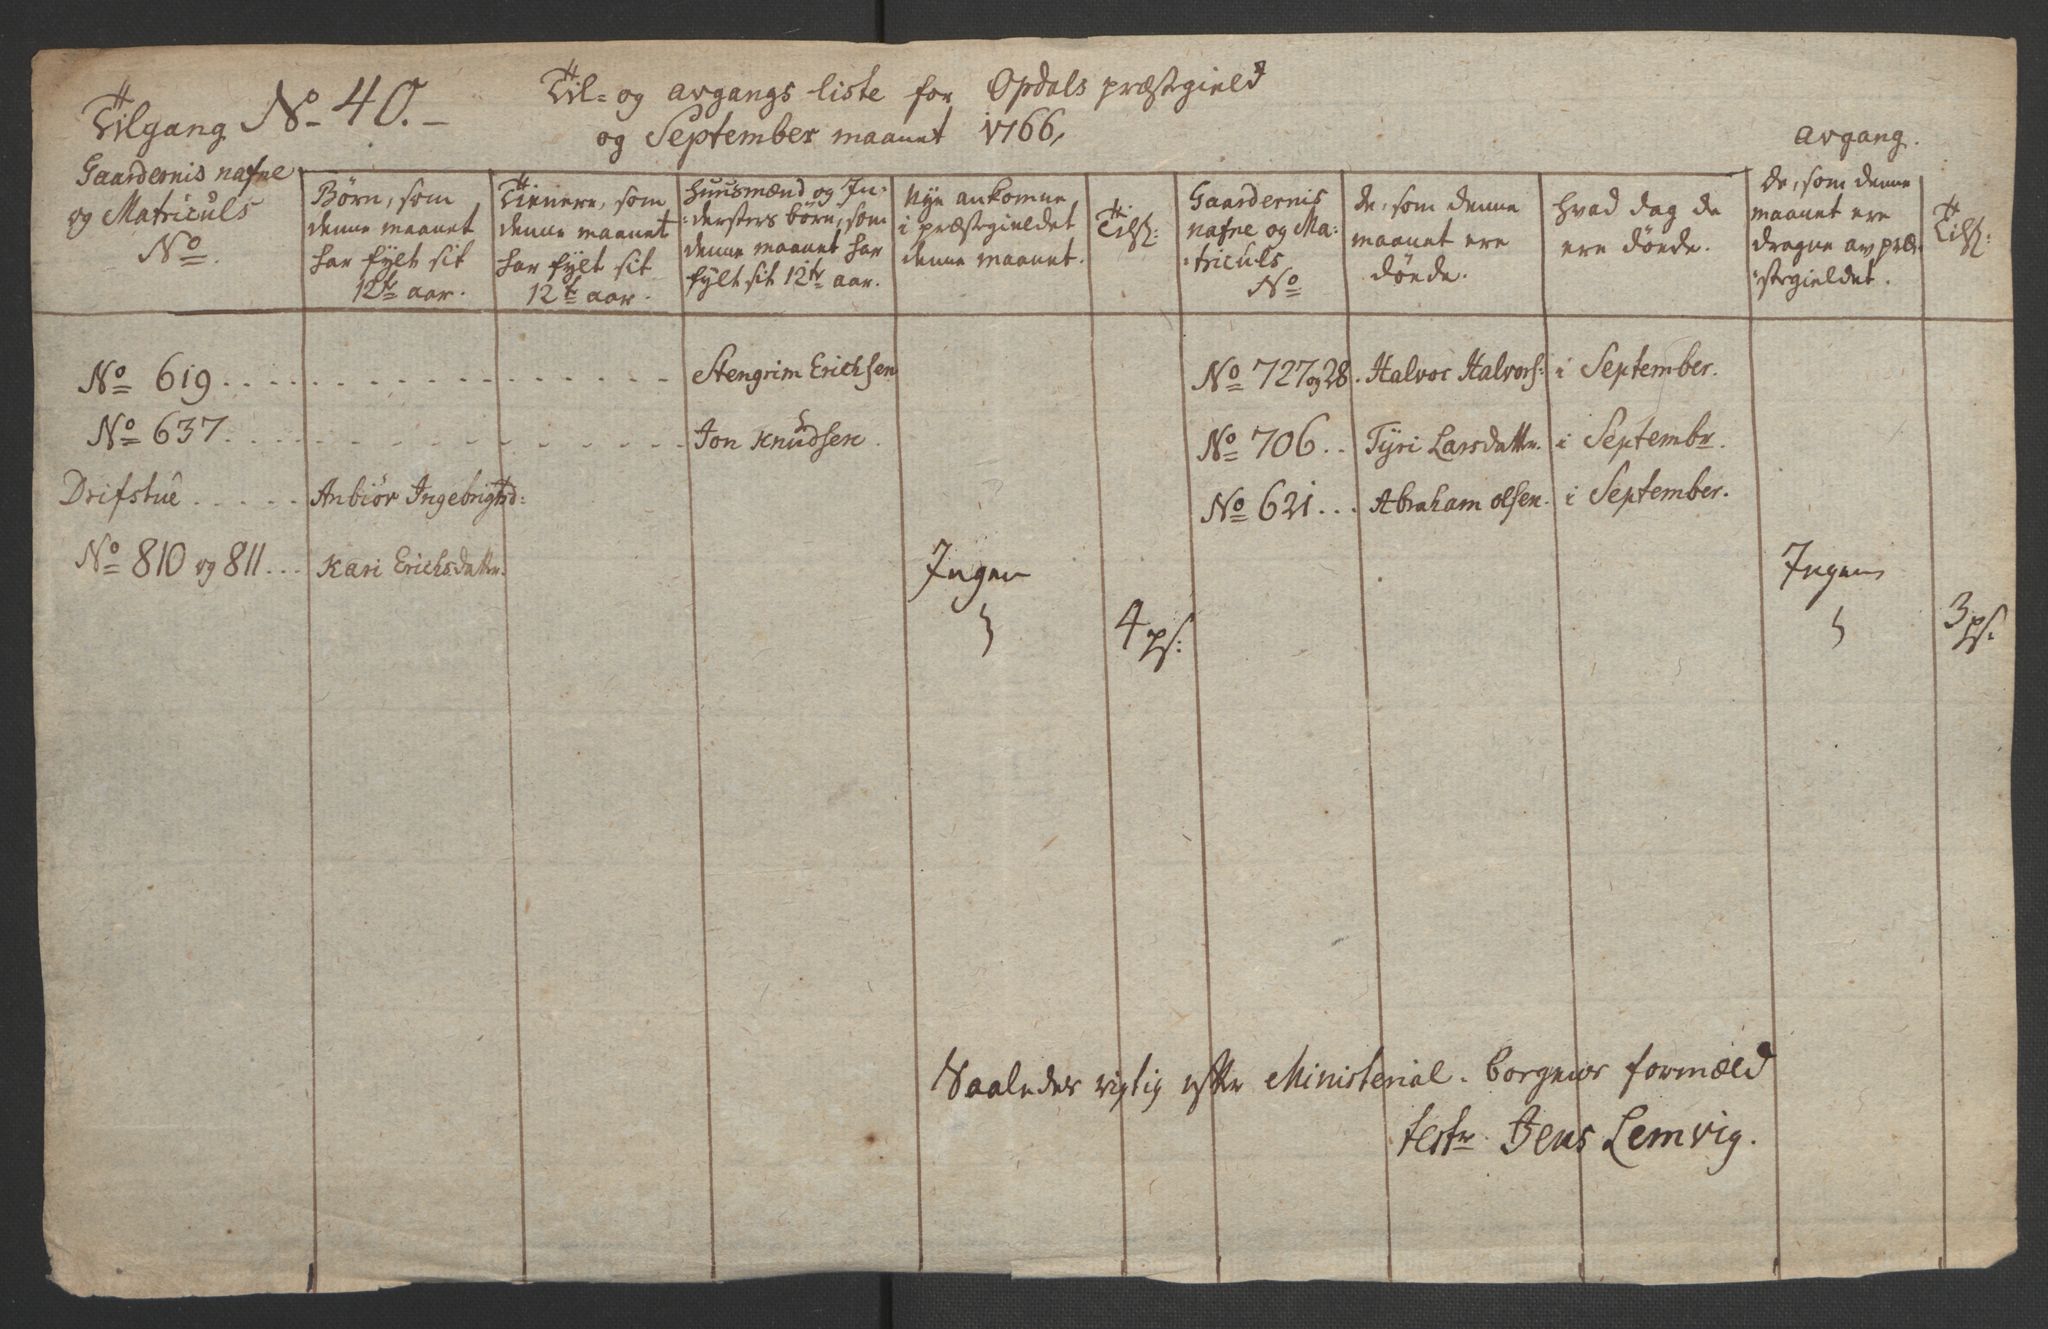 Tilgang No 40.-
Til- og avgangs liste for Opdals præstgield
og September maanet 1766,
avgang.
Gaardernis nafne
og Matriculs
No.
Børn, som
denne maanet
har fylt sit
12te aar.
Tienere, som
denne maanet
har fylt sit
12te aar.
huusmænd og In-
dersters børn, som
denne maanet har
fylt sit 12te aar.
Nye ankomne
i præstgieldet
denne maanet.
Tils:
Gaardernis
nafne og Ma-
triculs
No
de, som denne
maanet ere
døede.
hvad dag de
ere døede.
de, som denne
maanet ere
dragne av præ-
stgieldet.
Tils:
No 619 . . . . Stengrim Erichsen
No 637 . . . . Jon Knudsen.
Drifstue . . . . Anbiør Ingebrigtsd:
No 810 og 811 . . . Kari Erichsdattr.
Ingen
4 ps:
No 727 og 28. Halvor Halvors: i September.
No 706 . . Tyri Larsdattr. i Septembr.
No 621 . . . Abraham olsen. i September.
Ingen
3 ps.
Saaledes rigtig efter Ministerial-bogens formæld
test. Jens Lemvig.